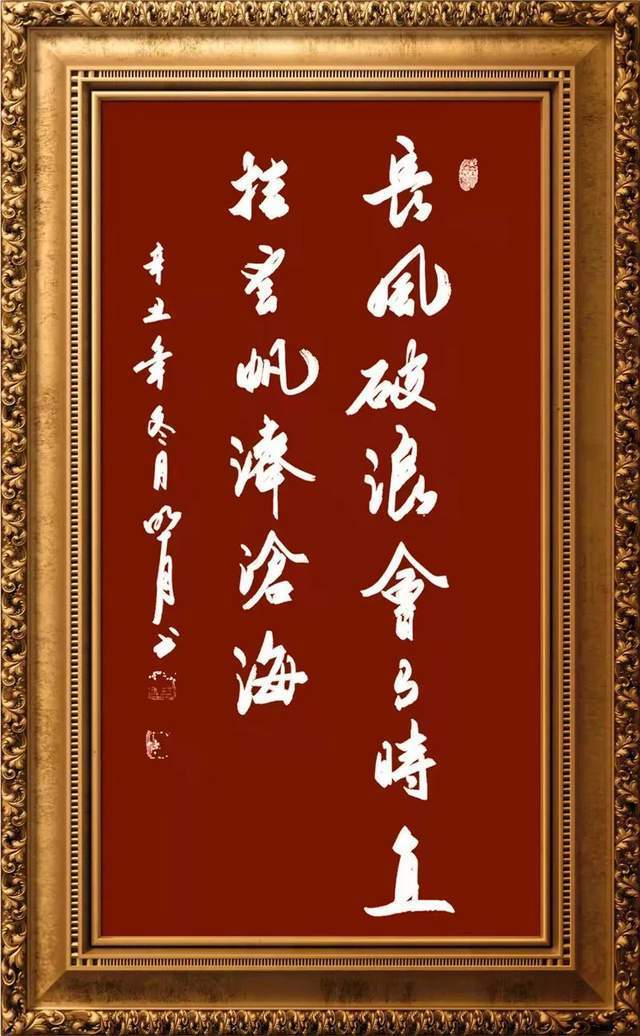 長風破浪會有時直
掛雲帆濟滄海
辛丑年冬月明月书